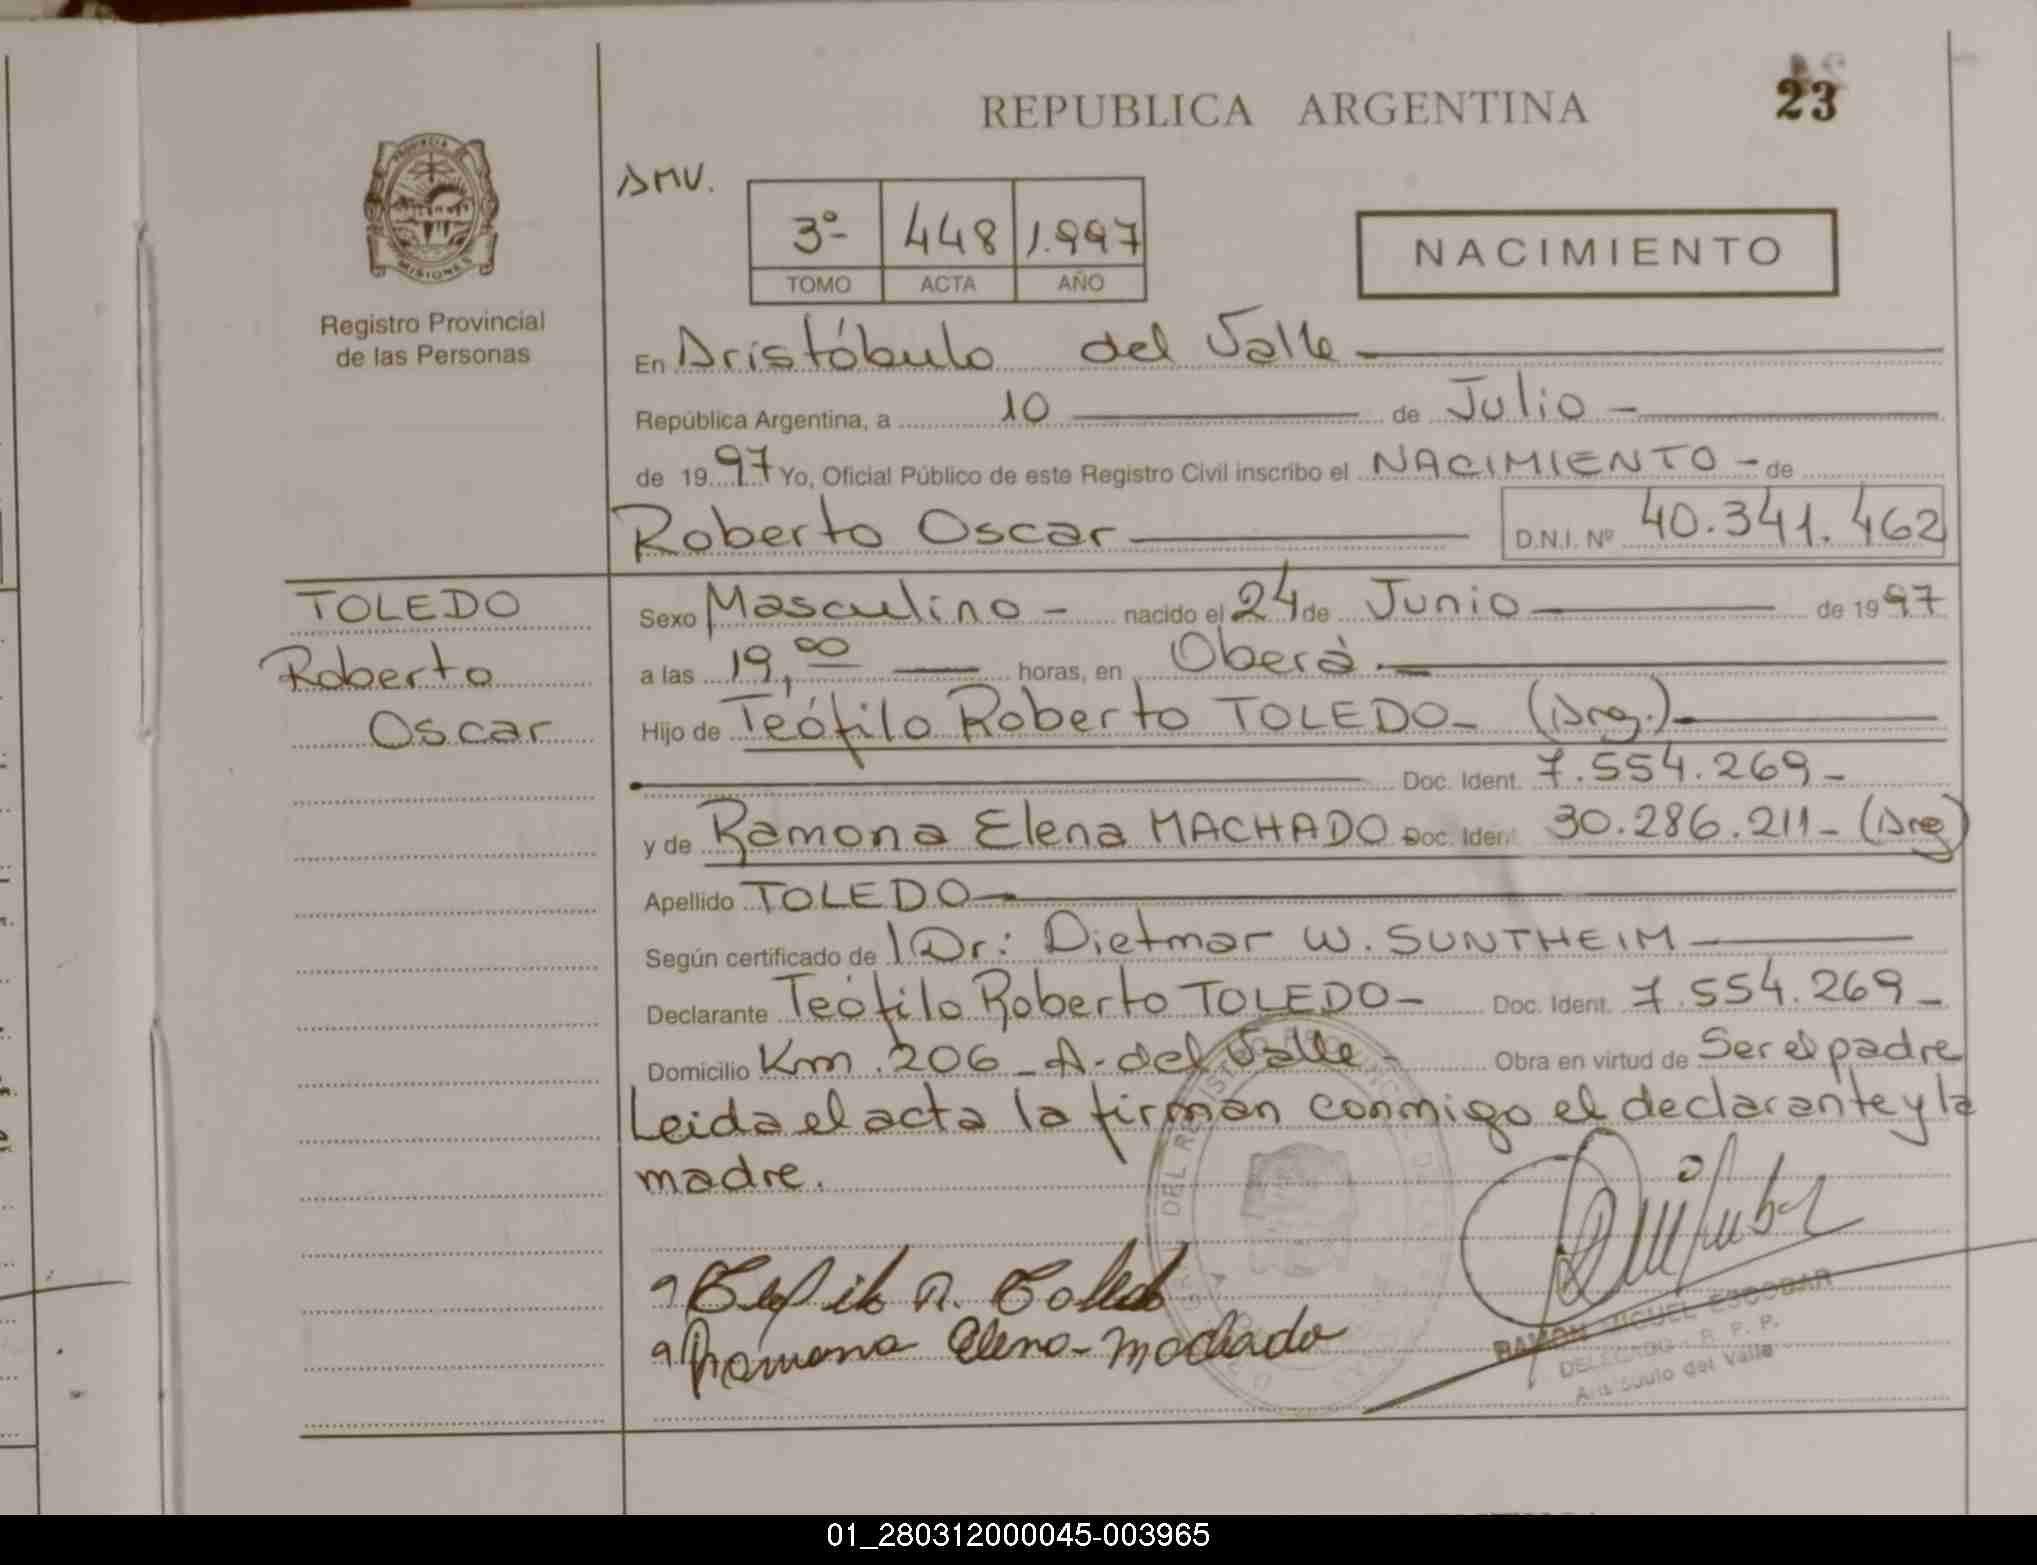 REPUBLICA ARGENTINA
23
PROVINCIA DE
MISIONES
Registro Provincial
de las Personas
AMV.
3º 448 1.997
TOMO ACTA AÑO
NACIMIENTO
En Aristóbulo del Valle
República Argentina, a 10 de Julio
de 1997 Yo, Oficial Público de este Registro Civil inscribo el NACIMIENTO - de
Roberto Oscar D.N.I. Nº 40.341.462
TOLEDO
Roberto
Oscar
Sexo Masculino - nacido el 24 de Junio de 1997
a las 19,00 horas, en Oberá
Hijo de Teófilo Roberto TOLEDO - (Arg.)
Doc. Ident. 7.554.269 -
y de Ramona Elena MACHADO Doc. Ident. 30.286.211 - (Arg)
Apellido TOLEDO
Según certificado de l Dr: Dietmar W. SUNTHEIM
Declarante Teófilo Roberto TOLEDO - Doc. Ident. 7.554.269 -
Domicilio Km. 206 - A. del Valle - Obra en virtud de Ser el padre
Leida el acta la firman conmigo el declarante y la
madre.
Teofilo R. Toledo
Ramona Elena Machado
RAMON MIGUEL ESCOBAR
DELEGADO R. P. P.
Aristóbulo del Valle
01_280312000045-003965